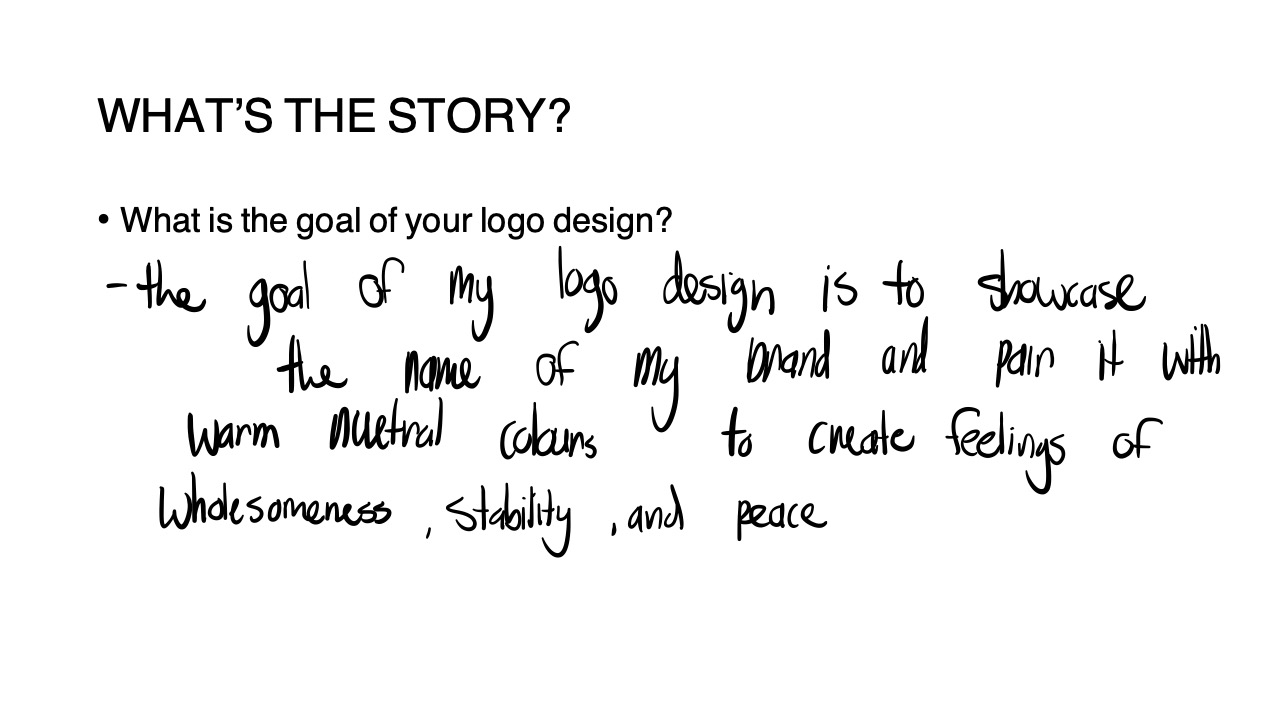 WHAT'S THE STORY?
• What is the goal of your logo design?
- the goal of my logo design is to showcase
the name of my brand and pair it with
warm nuetral colours to create feelings of
wholesomeness, stability, and peace